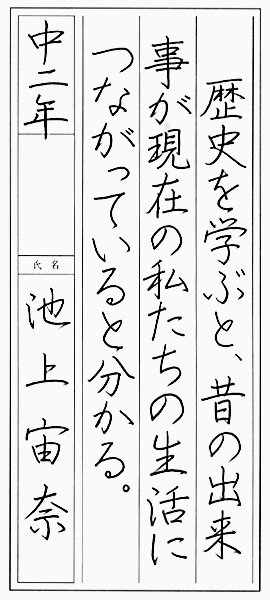 歴史を学ぶと、昔の出来
事が現在の私たちの生活に
つながっていると分かる。
中二年
氏名
池上宙奈